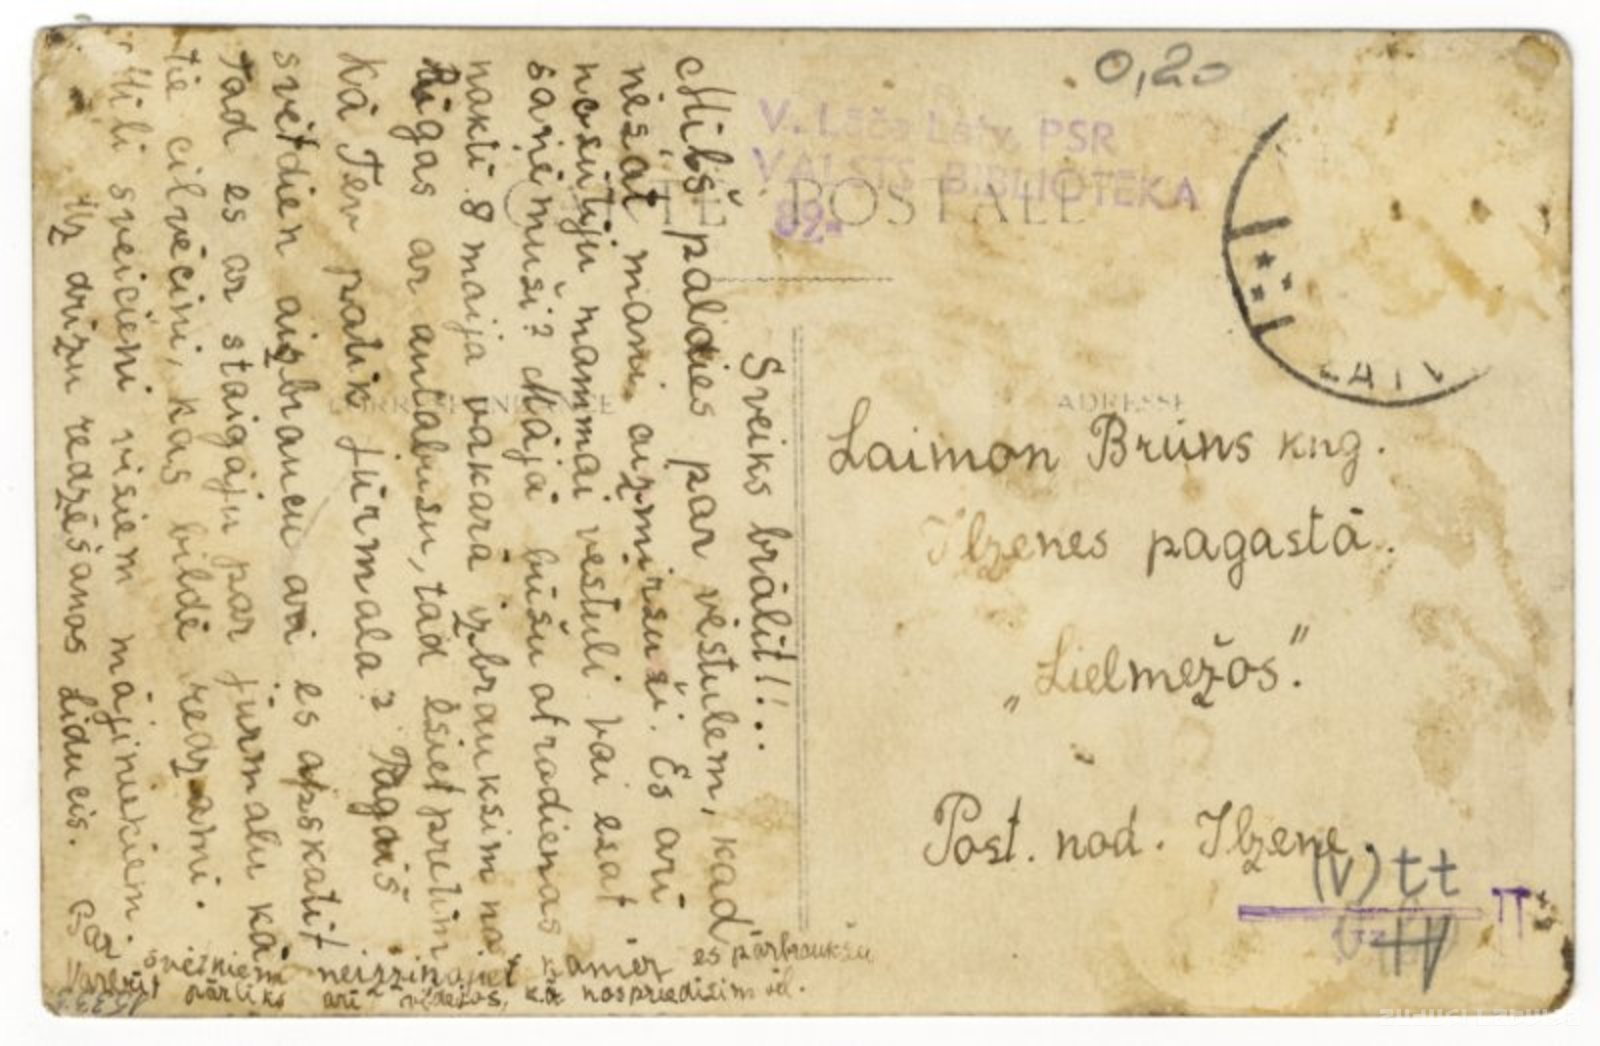 0,20
V. Lāča Latv. PSR
VALSTS BIBLIOTEKA
89-
CARTE POSTALE
CORRESPONDANCE
ADRESSE
Sveiks brālīt!!..
Mīļš paldies par vēstulem, kad
nēsat mani aizmirsuši. Es arī
nosūtiju mammai vēstuli. Vai esat
saņēmuši? Mājā būšu atrodienas
naktī 8 maija vakarā izbrauksim no
Rīgas ar autobusu, tad ēsiet pretim
Kā Tev patīk jūrmala? Pagaiš
svētdien aizbraucu arī es apskatīt
Tad es ar staigāju par jūrmalu kā
tie cilvēciņi, kas bildē redzami.
Mīļi sveicieni visiem mājiniekiem.
Uz drīzu redzēšanos Liducis.
svētkiem neizzinojiet kamēr es pārbraukšu
Varbūt pārliks arī vēdējos, kā nospriedīsim vēl.
Laimon Brūns kng.
Ilzenes pagastā.
„Lielmežos."
Post. nod. Ilzene.
(V) tt